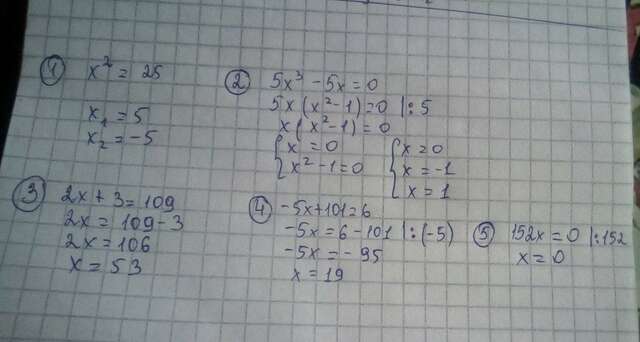 ① x² = 25
x₁ = 5
x₂ = -5
② 5x³ - 5x = 0
5x(x² - 1) = 0 |: 5
x(x² - 1) = 0
{x = 0
{x² - 1 = 0
{x = 0
{x = -1
{x = 1
③ 2x + 3 = 109
2x = 109 - 3
2x = 106
x = 53
④ -5x + 101 = 6
-5x = 6 - 101 |: (-5)
-5x = -95
x = 19
⑤ 152x = 0 |: 152
x = 0